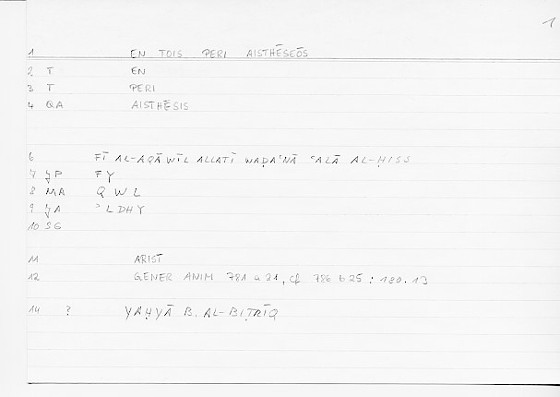 1
1 EN TOIS PERI AISTHĒSEŌS
2 T EN
3 T PERI
4 QA AISTHĒSIS
6 FĪ AL-AQĀWĪL ALLATĪ WAḌAʿNĀ ʿALĀ AL-ḤISS
7 YP FY
8 MA QWL
9 YA ʾLDHY
10 SG
11 ARIST
12 GENER ANIM 781 a 21, cf 786 b 25 : 180.13
14 ? YAḤYĀ B. AL-BIṬRĪQ